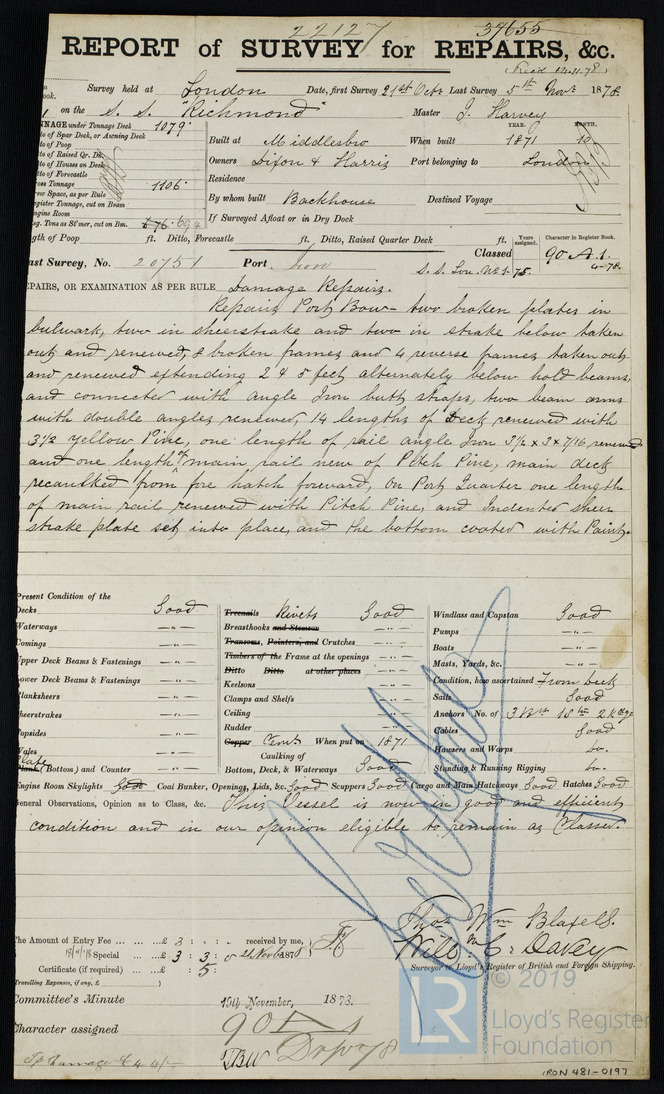 22127 37655
REPORT of SURVEY for REPAIRS, &c.
(Recd 12.11.78)
Survey held at London Date, first Survey 21st Octr Last Survey 5th Novr 1878
on the S. S. "Richmond" Master J. Harvey
NNAGE under Tonnage Deck 1079
to of Spar Deck, or Awning Deck
to of Poop
to of Raised Qr. Dk
to of Houses on Deck
to of Forecastle
ross Tonnage 1106
rew Space, as per Rule
egister Tonnage, cut on Beam
ngine Room
eg. Tons as St'mer, cut on Bm. 694
YEAR. MONTH.
Built at Middlesbro When built 1871 10
Owners Dixon & Harris Port belonging to London
Residence
By whom built Backhouse Destined Voyage
If Surveyed Afloat or in Dry Dock
gth of Poop ft. Ditto, Forecastle ft. Ditto, Raised Quarter Deck ft.
Years assigned. Character in Register Book.
Classed 90 A.1.
4-78
ast Survey, No. 20751 Port Iron S. S. Lon. No 1-75
EPAIRS, OR EXAMINATION AS PER RULE Damage Repairs.
Repairs Port Bow - two broken plates in
bulwark, two in sheerstrake and two in strake below taken
out and renewed, 8 broken frames and 4 reverse frames taken out
and renewed extending 2 & 5 feet alternately below hold beams,
and connected with angle Iron butt straps, two beam arms
with double angles renewed, 14 lengths of deck renewed with
3½ yellow Pine, one length of rail angle Iron 3½ x 3 x 7/16 renewed
and one length of main rail new of Pitch Pine, main deck
recaulked from fore hatch forward, On Port Quarter one length
of main rail renewed with Pitch Pine, and Indented sheer
strake plate set into place, and the bottom coated with Paint.
Present Condition of the
Decks Good
Waterways - " -
Comings - " -
Upper Deck Beams & Fastenings - " -
Lower Deck Beams & Fastenings - " -
Planksheers - " -
Sheerstrakes - " -
Topsides - " -
Wales - " -
Plate
Plank (Bottom) and Counter - " -
Treenails Rivets Good
Breasthooks and Stemson - " -
Transoms, Pointers, and Crutches - " -
Timbers of the Frame at the openings - " -
Ditto Ditto at other places - " -
Keelsons - " -
Clamps and Shelfs - " -
Ceiling - " -
Rudder - " -
Copper Cemt When put on 1871
Caulking of
Bottom, Deck, & Waterways Good
Windlass and Capstan Good
Pumps - " -
Boats - " -
Masts, Yards, &c. - " -
Condition, how ascertained From Deck
Sails Good
Anchors No. of 3 Br 1 St 2 Kedge
Cables Good
Hawsers and Warps Do.
Standing & Running Rigging Do.
Engine Room Skylights Good Coal Bunker, Openings, Lids, &c. Good Scuppers Good Cargo and Main Hatchways Good Hatches Good
General Observations, Opinion as to Class, &c. This Vessel is now in good and efficient
condition and in our opinion eligible to remain as Classed.
The Amount of Entry Fee ... ... ...£ 3 : - : - received by me,
Special ... ...£ 3 : 3 : 0
Certificate (if required) ... ...£ : 5 :
Travelling Expenses, if any, £ )
Thos Wm Blafell.
Willm C. Davey
Surveyor to Lloyd's Register of British and Foreign Shipping.
Committee's Minute 15th November, 1878.
Character assigned 90 A 1
© 2019
LR Lloyd's Register
Foundation
IRON 481-0197